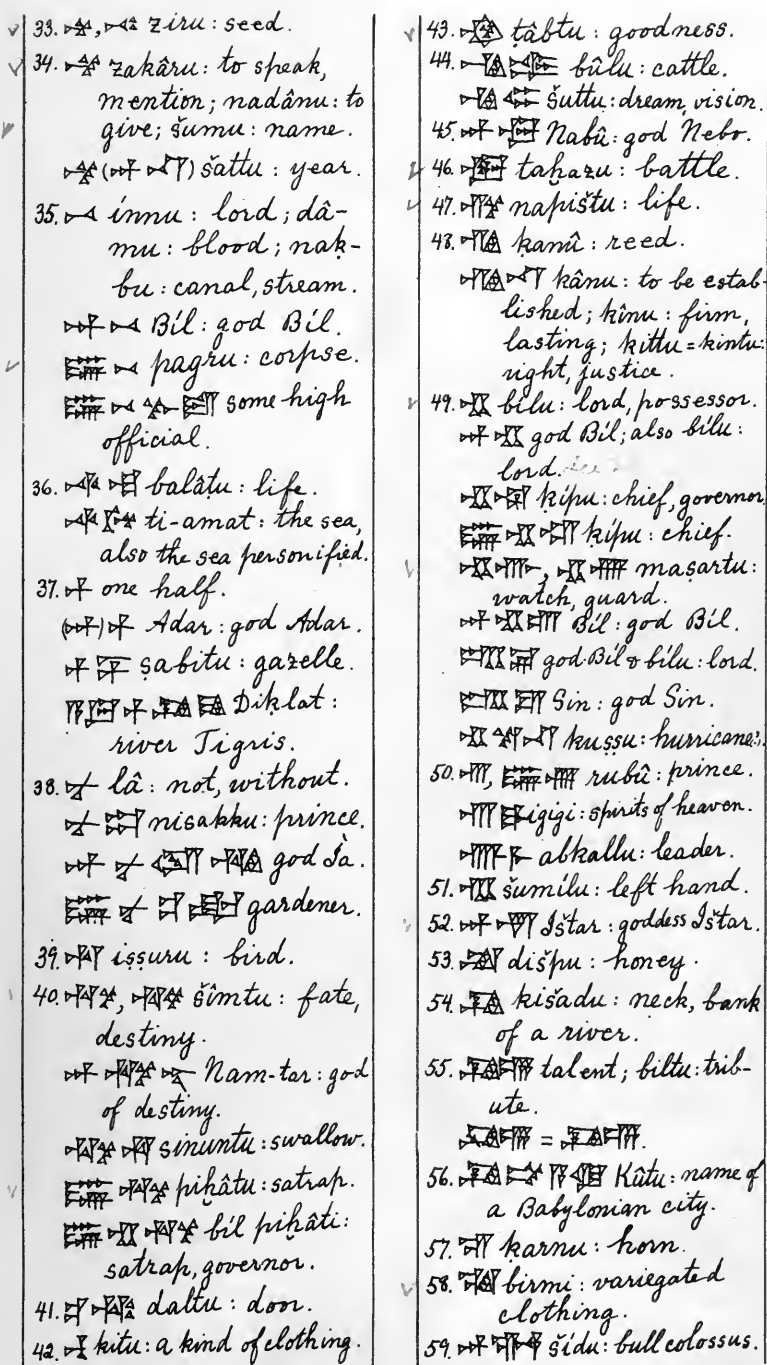 33. 𒆰, ziru : seed.
34. 𒈬 zakâru: to speak,
mention; nadânu: to
give; šumu : name.
𒈬 (𒀭 𒈾) šattu : year.
35. 𒁁 ínnu : lord; dâ-
mu : blood; nak-
bu : canal, stream.
𒀭 𒁁 Bíl : god Bíl.
𒇽 𒁁 pagru : corpse.
𒇽 𒁁 some high
official.
36. 𒋾 𒆷 balâṭu : life.
𒋾 ti-amat : the sea,
also the sea personified.
37. 𒈦 one half.
(𒀭) 𒈦 Adar : god Adar.
𒈦 𒆕 ṣabitu : gazelle.
Diḳlat :
river Tigris.
38. 𒉡 lâ : not, without.
𒉡 nisakku : prince.
𒀭 𒉡 god Ía.
𒇽 𒉡 𒄑 𒊬 gardener.
39. 𒄷 iṣṣuru : bird.
40. 𒉆, 𒉆 šîmtu : fate,
destiny.
𒀭 𒉆 𒋻 Nam-tar : god
of destiny.
𒉆 𒄷 sinuntu : swallow.
𒇽 𒉆 piḫâtu : satrap.
𒇽 𒂗 𒉆 bíl piḫâti :
satrap, governor.
41. 𒄑 𒅅 daltu : door.
42. kitu : a kind of clothing.
43. ṭâbtu : goodness.
44. bûlu : cattle.
šuttu : dream, vision.
45. 𒀭 𒀝 Nabû : god Nebo.
46. taḫazu : battle.
47. 𒍣 napištu : life.
48. 𒄀 ḳanû : reed.
𒄀 𒈾 kânu : to be estab-
lished ; kînu : firm,
lasting ; kittu = kintu :
right, justice.
49. 𒂗 bílu : lord, possessor.
𒀭 𒂗 god Bíl ; also bílu :
lord.
𒂗 ḳípu : chief, governor
𒇽 𒂗 ḳípu : chief.
𒂗 𒉣, 𒂗 maṣartu :
watch, guard.
𒀭 𒂗 Bíl : god Bíl.
god Bíl & bílu : lord.
Sin : god Sin.
kuṣṣu : hurricane?.
50. 𒉣, 𒇽 𒉣 rubû : prince.
𒉣 𒃲 igigi : spirits of heaven.
𒉣 𒈨 abkallu : leader.
51. šumílu : left hand.
52. 𒀭 𒈹 Ištar : goddess Ištar.
53. dišpu : honey.
54. 𒄘 kišadu : neck, bank
of a river.
55. 𒄘 𒌦 talent ; biltu : trib-
ute.
=
56. 𒄘 𒀀 𒆠 Kûtu : name of
a Babylonian city.
57. 𒋛 ḳarnu : horn.
58. birmi : variegated
clothing.
59. 𒀭 šídu : bull colossus.